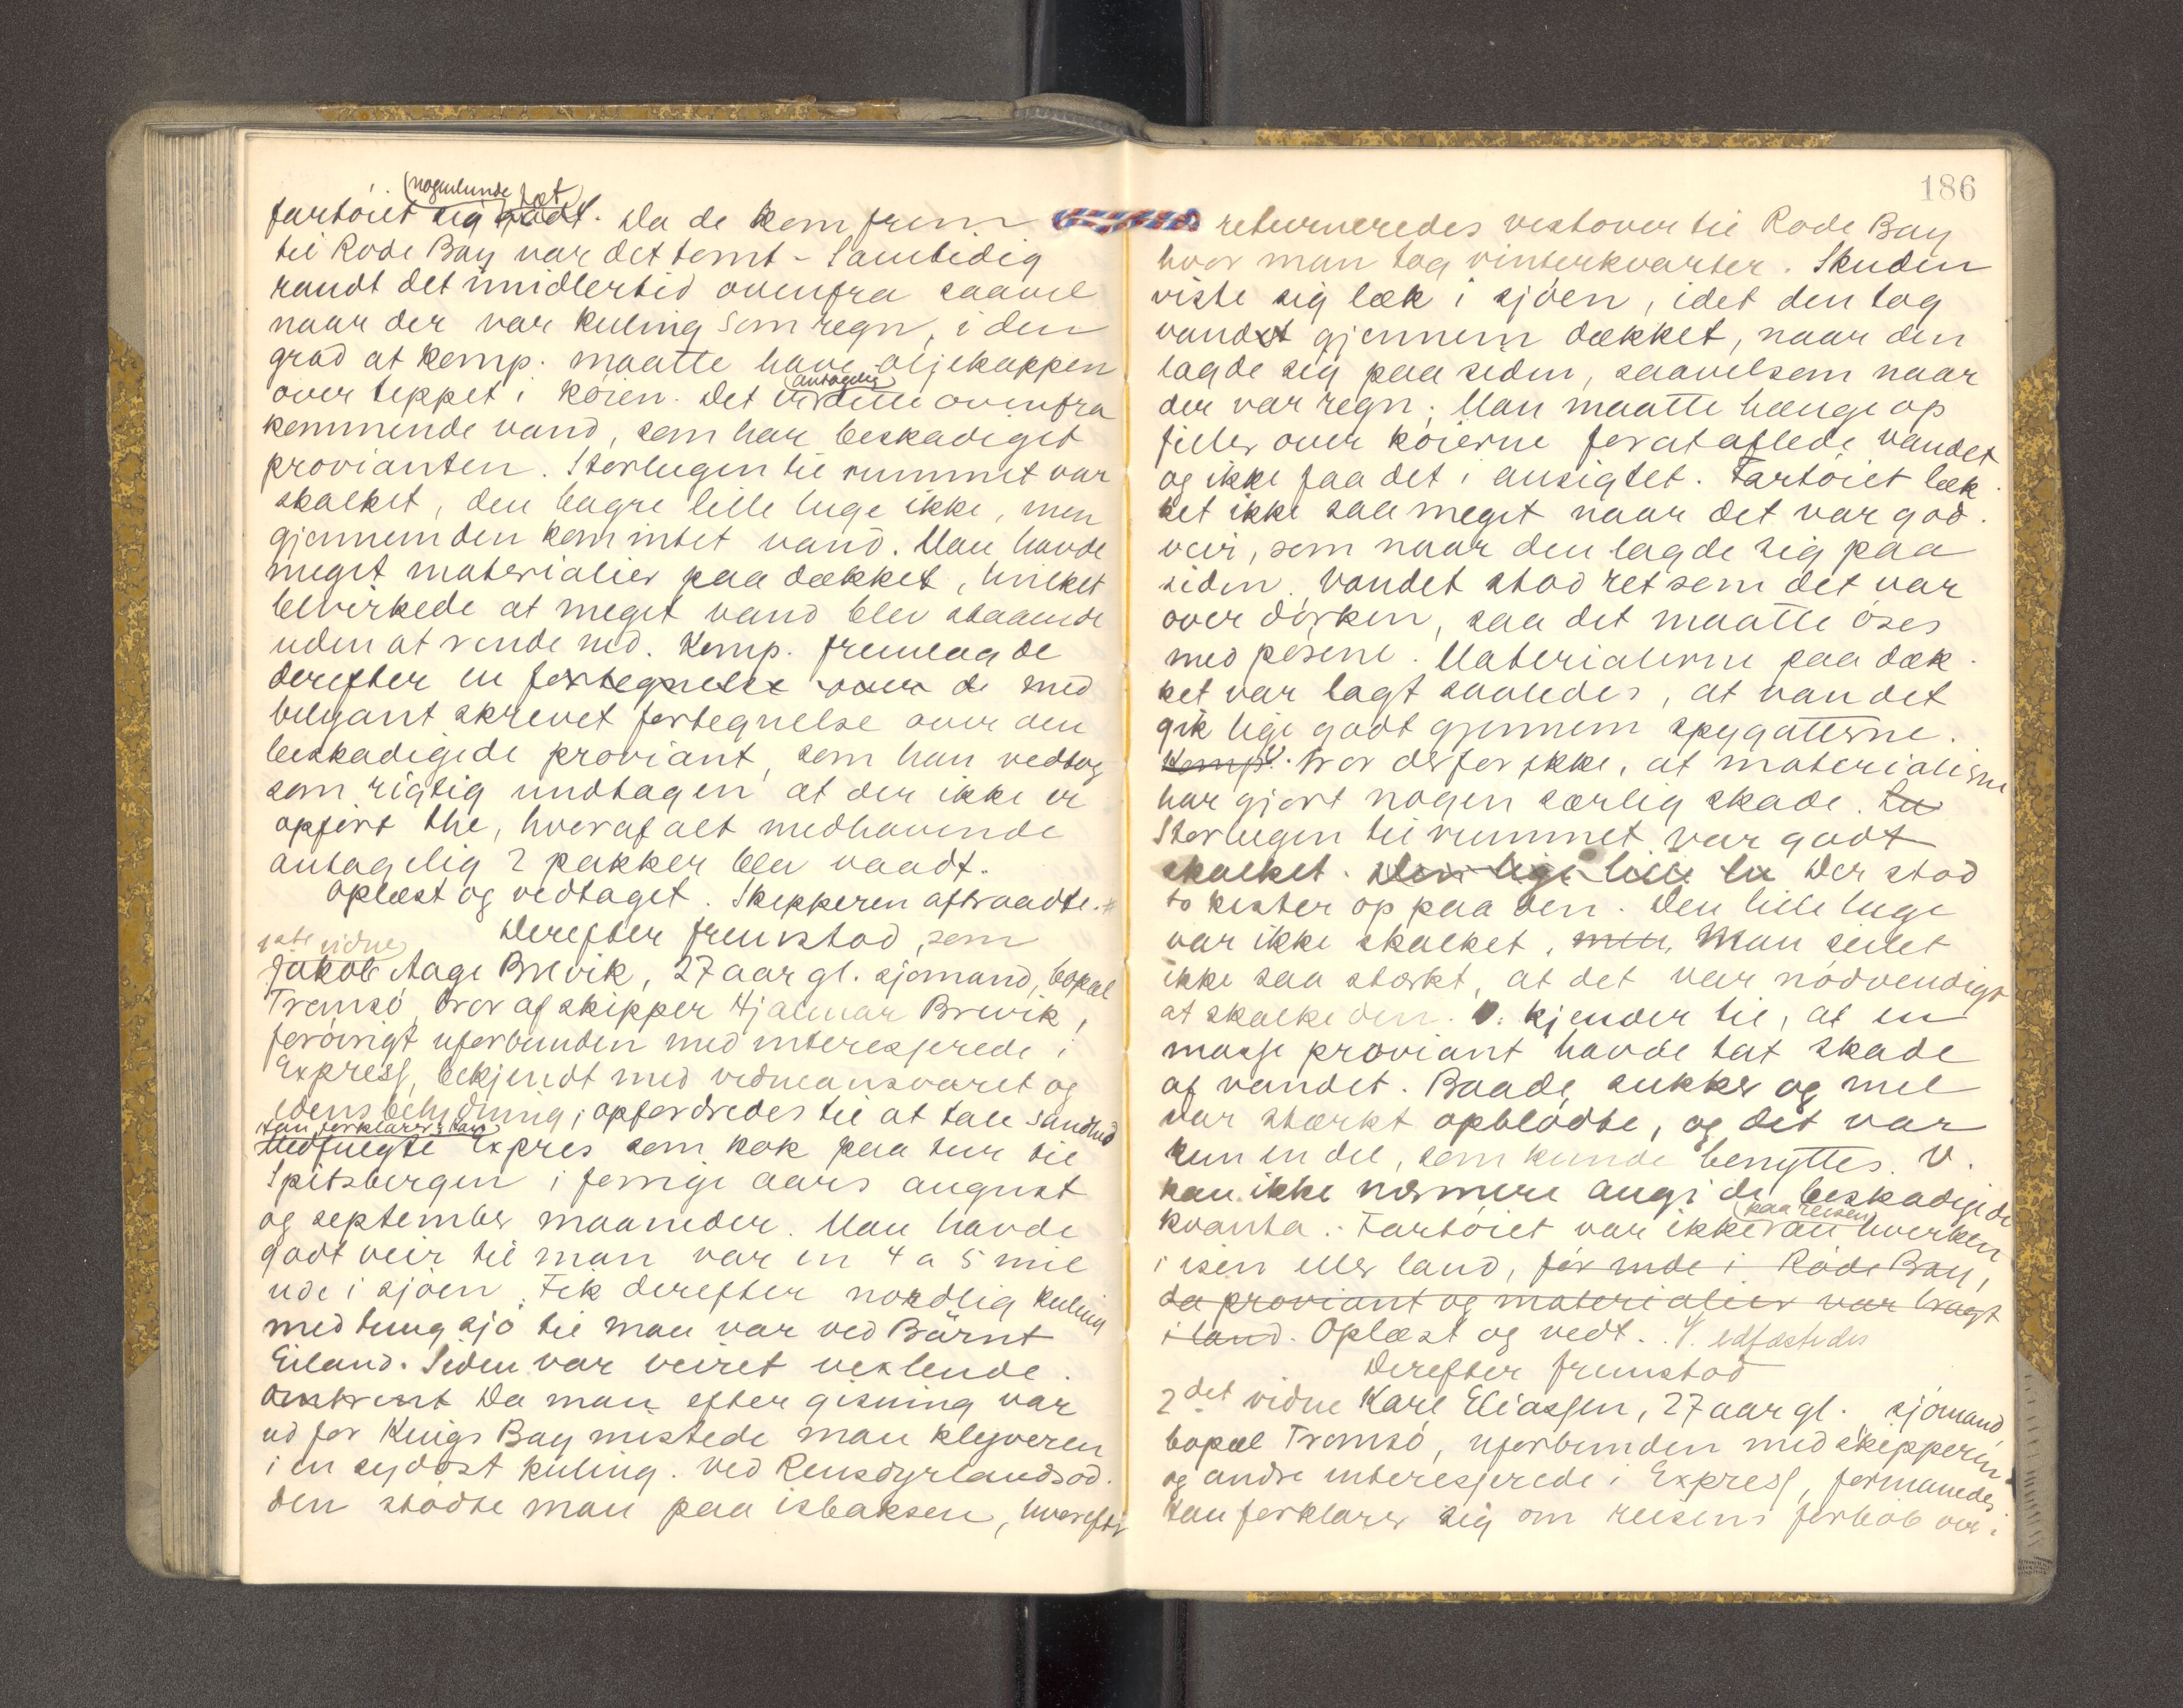 nogenlunde tæt
fartöiet sig godt. Da de kom frem
til Rode Bay var det tomt - Samtidig
randt det imidlertid ovenfra saavel
naar der var kuling som regn, i den
grad at komp. maatte have oljekappen
antagelig
over teppet i köien. Det er dette ovenfra
kommende vand, som har beskadiget
provianten. Storlugen til rummet var
skalket, den bagre lille luge ikke, men
gjennem den kom intet vand. Man havde
meget materialier paa dækket, hvilket
bevirkede at meget vand blev staaende
uden at rende ned. Komp. fremlagde
derefter en fortegnelse over de med
blyant skrevet fortegnelse over den
beskadigede proviant, som han vedtog
som rigtig undtagen at der ikke er
opfört the, hvoraf alt medhavende
antagelig 2 pakker blev vaadt.
Oplæst og vedtaget. Skipperen aftraadte. #
Derefter fremstod som
1ste vidne
Jakob Aage Brevik, 27 aar gl. sjömand, bopæl
Tromsö, bror af skipper Hjalmar Brevik,
forövrigt uforbunden med interesserede i
Express, bekjendt med vidneansvaret og
edens betydning, opfordredes til at tale sandhed
Han forklarer: Han
medfulgte Expres som kok paa tur til
Spitsbergen i forrige aars august
og september maaneder. Man havde
godt veir til man var en 4 a 5 mil
ude i sjöen. Fik derefter nordlig kuling
med tung sjö til man var ved Bärnt
Eiland. Siden var veiret vexlende.
Omtrent Da man efter gisning var
ud for Kings Bay mistede man klyveren
i en sydost kuling. Ved Rensdyrlandsod-
den stödte man paa isbaksen, hvorefter
186
returneredes vestover til Rode Bay
hvor man tog vinterkvarter. Skuden
viste sig læk i sjöen, idet den tog
vandet gjennem dækket, naar den
lagde sig paa siden, saavelsom naar
der var regn. Man maatte hænge op
filler over köierne for at aflede vandet
og ikke faa det i ansigtet. Fartöiet læk-
ket ikke saa meget naar det var god-
veir, som naar den lagde sig paa
siden. Vandet stod ret som det var
over dörken, saa det maatte öses
med pösene. Materialerne paa dæk-
ket var lagt saaledes, at vandet
gik lige godt gjennem spygatterne.
Komp. V. tror derfor ikke, at materialierne
har gjort nogen særlig skade. Lu
Storlugen til rummet var godt
skalket. Den lige lille lu Der stod
to kister op paa den. Den lille luge
var ikke skalket, men Man seilet
ikke saa stærkt, at det var nödvendigt
at skalke den. V. kjender til, at en
masse proviant havde tat skade
af vandet. Baade sukker og mel
var stærkt opblödte, og det var
kun en del, som kunde benyttes. V.
kan ikke nærmere angi de beskadigede
paa reisen
kvanta. Fartöiet var ikke an hverken
i isen eller land, för inde i Röde Bay,
da proviant og materialier var bragt
i land. Oplæst og vedt. V. edfæstedes
Derefter fremstod
2det vidne Karl Eliassen, 27 aar gl. sjömand,
bopæl Tromsö, uforbunden med skipperen
og andre interesserede i Express, formanedes
Han forklarer sig om reisens forlöb ove i